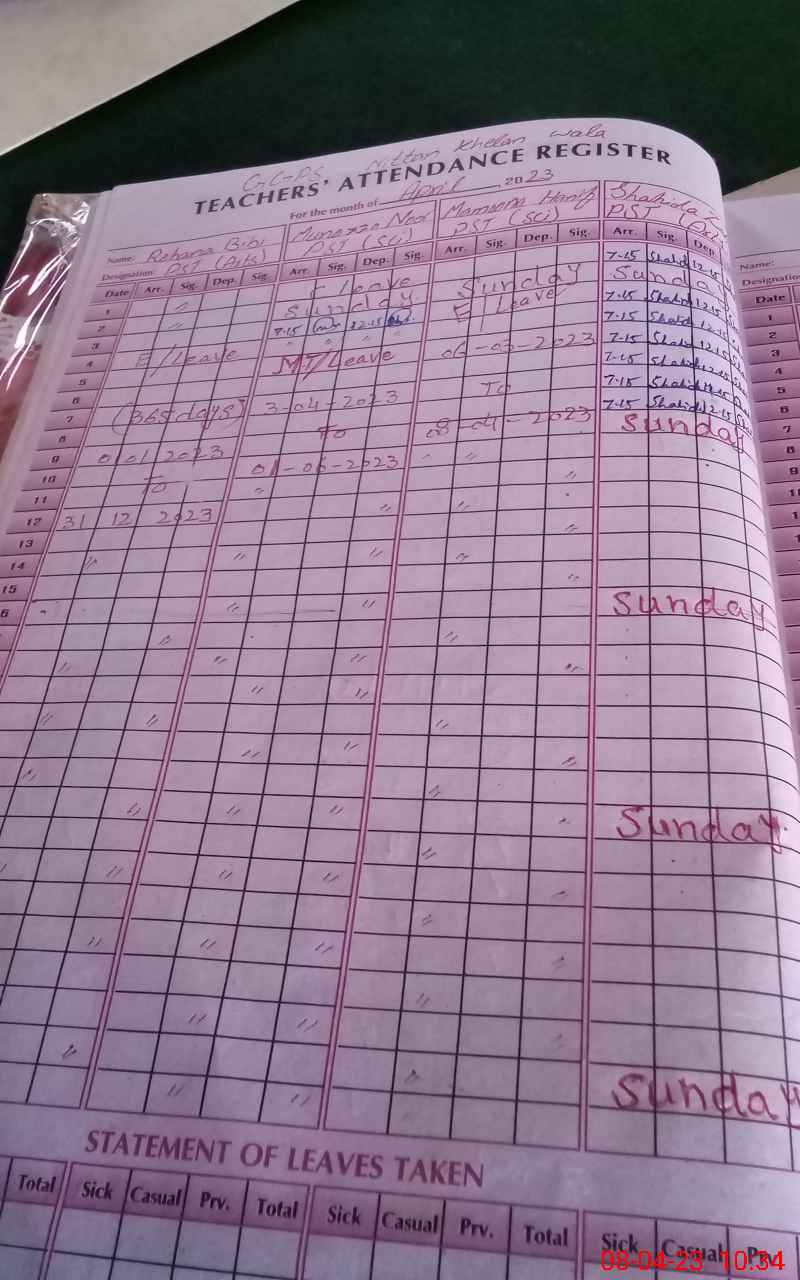 GGPS Mittha Khelan wala
TEACHERS' ATTENDANCE REGISTER
For the month of April, 2023
Name: Rehana Bibi Munazza Noor Mamoona Hanif Shahida
Designation: PST (Arts) PST (Sci) PST (Sci) PST
Date Arr. Sig. Dep. Sig. Arr. Sig. Dep. Sig. Arr. Sig. Dep. Sig. Arr. Sig. Dep.
1 " Leave 7-15 Shahid 12-15
2 " Sunday Sunday Sunday
3 7-15 12-15 E/Leave 7-15 Shahid 12-15
4 E/Leave " " " " 7-15 Shahid 12-15
5 MT/Leave 06-03-2023 7-15 Shahid 12-15
6 To 7-15 Shahid 12-15
7 (365 days) 3-04-2023 7-15 Shahid 12-15
8 To 08-04-2023 7-15 Shahid 12-15
9 01 01 2023 Sunday
10 To 01-06-2023
11
12 31 12 2023
13
14
15
6 Sunday
Sunday
Sunday
STATEMENT OF LEAVES TAKEN
Total Sick Casual Prv. Total Sick Casual Prv. Total Sick Casual Prv.
Name:
Designation
Date
1
2
3
4
5
6
7
8
9
10
11
08-04-23 10:34